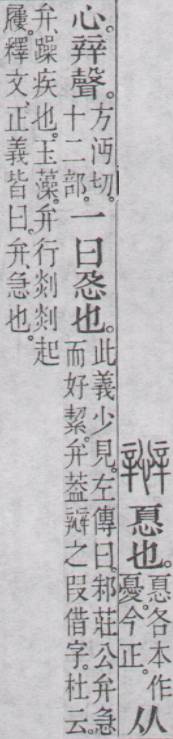 㥑也。㥑各本作
憂。今正。从
心。辡聲。方沔切。
十二部。一曰急也。此義少見。左傳曰。邾莊公弁急
而好絜。弁葢辯之叚借字。杜云。
弁、躁疾也。玉藻。弁行剡剡起
屨。釋文、正義皆曰。弁急也。